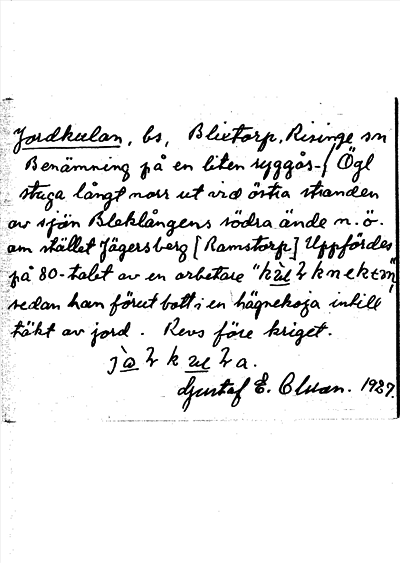 Jordkulan, bs, Blixtorp, Risinge sn
Benämning på en liten ryggås- / Ögl
stuga långt norr ut vid östra stranden
av sjön Bleklångens södra ände n. ö.
om stället Jägersberg [Ramstorp] Uppfördes
på 80-talet av en arbetare "
sedan han förut bott i en hägnekoja intill
täkt av jord. Revs före kriget.
Gustaf E. Olsson. 1927.